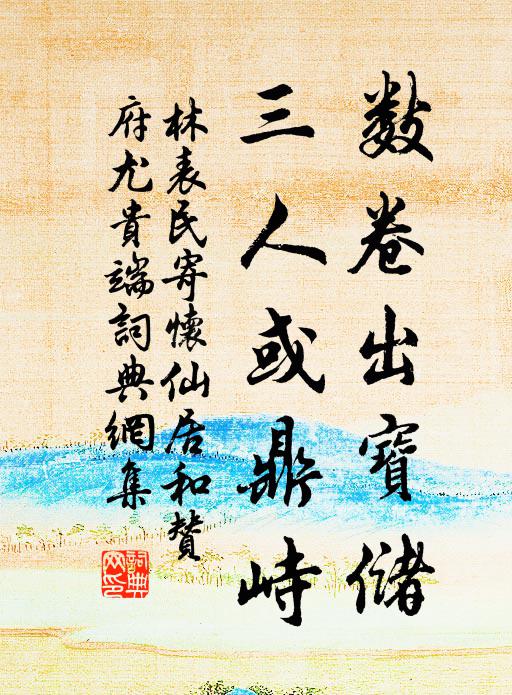 數卷出寶儲
三人或鼎峙
林表民寄懷仙居和贊
府尤貴端詞典網集
詞典
网印